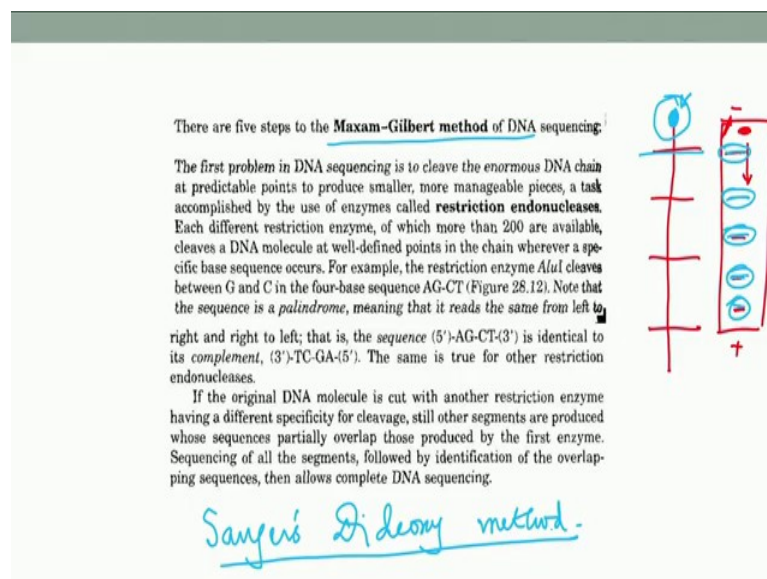 There are five steps to the Maxam–Gilbert method of DNA sequencing.
The first problem in DNA sequencing is to cleave the enormous DNA chain
at predictable points to produce smaller, more manageable pieces, a task
accomplished by the use of enzymes called restriction endonucleases.
Each different restriction enzyme, of which more than 200 are available,
cleaves a DNA molecule at well-defined points in the chain wherever a spe-
cific base sequence occurs. For example, the restriction enzyme AluI cleaves
between G and C in the four-base sequence AG-CT (Figure 28.12). Note that
the sequence is a palindrome, meaning that it reads the same from left to
right and right to left; that is, the sequence (5′)-AG-CT-(3′) is identical to
its complement, (3′)-TC-GA-(5′). The same is true for other restriction
endonucleases.
If the original DNA molecule is cut with another restriction enzyme
having a different specificity for cleavage, still other segments are produced
whose sequences partially overlap those produced by the first enzyme.
Sequencing of all the segments, followed by identification of the overlap-
ping sequences, then allows complete DNA sequencing.
Sanger's Dideoxy method.
-
+